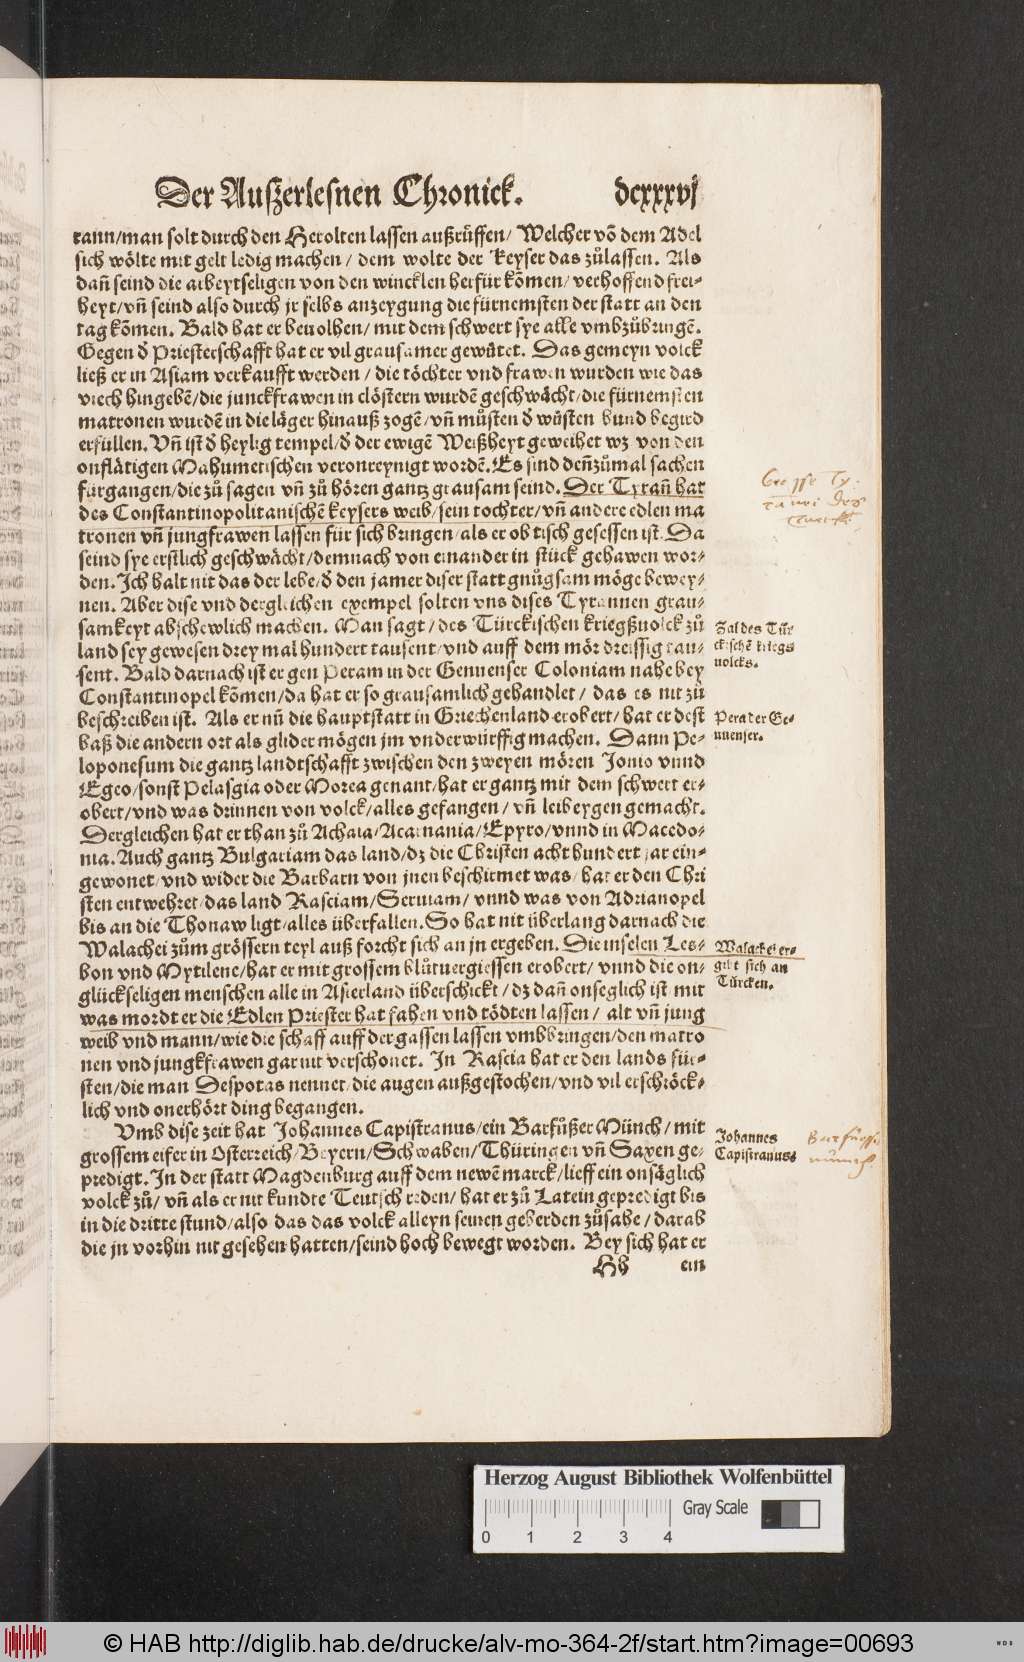 Der Außerlesnen Chronick. dcxxxvj
rann/man solt durch den Herolten lassen außrüffen/ Welcher võ dem Adel
sich wölte mit gelt ledig machen/ dem wolte der Keyser das zůlassen. Als
dañ seind die arbeytseligen von den wincklen herfür kõmen/ verhoffend frei-
heyt/vñ seind also durch jr selbs anzeygung die fürnemsten der statt an den
tag kõmen. Bald hat er beuolhen/ mit dem schwert sye alle vmbzůbringẽ.
Gegen d̃ Priesterschafft hat er vil grausamer gewütet. Das gemeyn volck
ließ er in Asiam verkaufft werden/ die töchter vnd frawen wurden wie das
viech hingebẽ/die junckfrawen in clöstern wurdẽ geschwächt/die fürnemsten
matronen wurdẽ in die läger hinauß zogẽ/ vñ můsten d̃ wüsten hund begird
erfüllen. Vñ ist d̃ heylig tempel/d̃ der ewigẽ Weißheyt geweihet wz von den
onflätigen Mahumetischen veronreynigt wordẽ. Es sind deñzůmal sachen
fürgangen/die zů sagen vñ zů hören gantz grausam seind. Der Tyrañ hat
des Constantinopolitanischẽ keysers weib/sein tochter/vñ andere edlen ma
tronen vñ jungfrawen lassen für sich bringen/als er ob tisch gesessen ist. Da
seind sye erstlich geschwächt/demnach von einander in stück gehawen wor-
den. Ich halt nit das der lebe/d̃ den jamer diser statt gnůgsam möge bewey-
nen. Aber dise vnd dergleichen exempel solten vns dises Tyrannen grau-
samkeyt abschewlich machen. Man sagt/des Türckischen kriegßuolck zů
land sey gewesen drey mal hundert tausent/vnd auff dem mör dreissig tau-
sent. Bald darnach ist er gen Peram in der Genuenser Coloniam nahe bey
Constantinopel kõmen/da hat er so grausamlich gehandlet/ das es nit zů
beschreiben ist. Als er nũ die hauptstatt in Griechenland erobert/hat er dest
baß die andern ort als glider mögen jm vnderwürffig machen. Dann Pe-
loponesum die gantz landtschafft zwischen den zweyen mören Ionio vnnd
Egeo/sonst Pelasgia oder Morea genant/hat er gantz mit dem schwert er-
obert/vnd was drinnen von volck/alles gefangen/ vñ leibeygen gemacht.
Dergleichen hat er than zů Achaia/Acarnania/Epyro/vnnd in Macedo-
nia. Auch gantz Bulgariam das land/dz die Christen acht hundert jar ein-
gewonet/vnd wider die Barbarn von jnen beschirmet was/hat er den Chri
sten entwehret/das land Rasciam/Seruiam/ vnnd was von Adrianopel
bis an die Thonaw ligt/alles überfallen. So hat nit überlang darnach die
Walachei zům grössern teyl auß forcht sich an jn ergeben. Die inselen Les-
bon vnd Mytilene/hat er mit grossem blůtuergiessen erobert/ vnnd die on-
glückseligen menschen alle in Asierland überschickt/ dz dañ onseglich ist mit
was mordt er die Edlen Priester hat fahen vnd tödten lassen/ alt vñ jung
weib vnd mann/wie die schaff auff der gassen lassen vmbbringen/den matro
nen vnd jungkfrawen gar nit verschonet. In Rascia hat er den lands für-
sten/die man Despotas nennet/die augen außgestochen/vnd vil erschröck-
lich vnd onerhört ding begangen.
Vmb dise zeit hat Johannes Capistranus/ein Barfüßer Münch/mit
grossem eifer in Osterreich/Beyern/Schwaben/Thüringen vñ Saxen ge-
predigt. In der statt Magdenburg auff dem newẽ marck/lieff ein onsäglich
volck zů/ vñ als er nit kundte Teutsch reden/ hat er zů Latein gepredigt bis
in die dritte stund/also das das volck alleyn seinen geberden zůsahe/darab
die jn vorhin nit gesehen hatten/seind hoch bewegt worden. Bey sich hat er
Hh ein
Grosse Ty-
rannei des
Türck.
Zal des Tür
ckischẽ kriegs
uolcks.
Pera der Ge-
nuenser.
Walachei er-
gibt sich an
Türcken.
Johannes
Capistranus
Barfüsser
münch
Herzog August Bibliothek Wolfenbüttel
0 1 2 3 4 Gray Scale
© HAB http://diglib.hab.de/drucke/alv-mo-364-2f/start.htm?image=00693